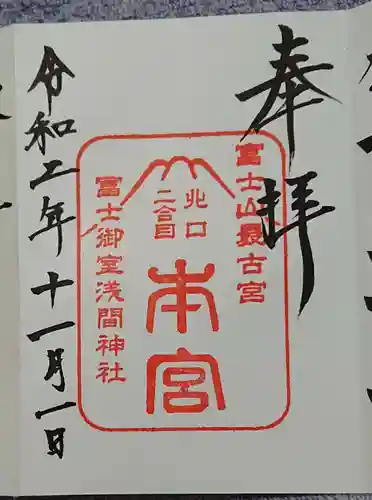 奉拝
富士山最古宮
北口
二合目
本宮
冨士御室浅間神社
令和五年十一月一日